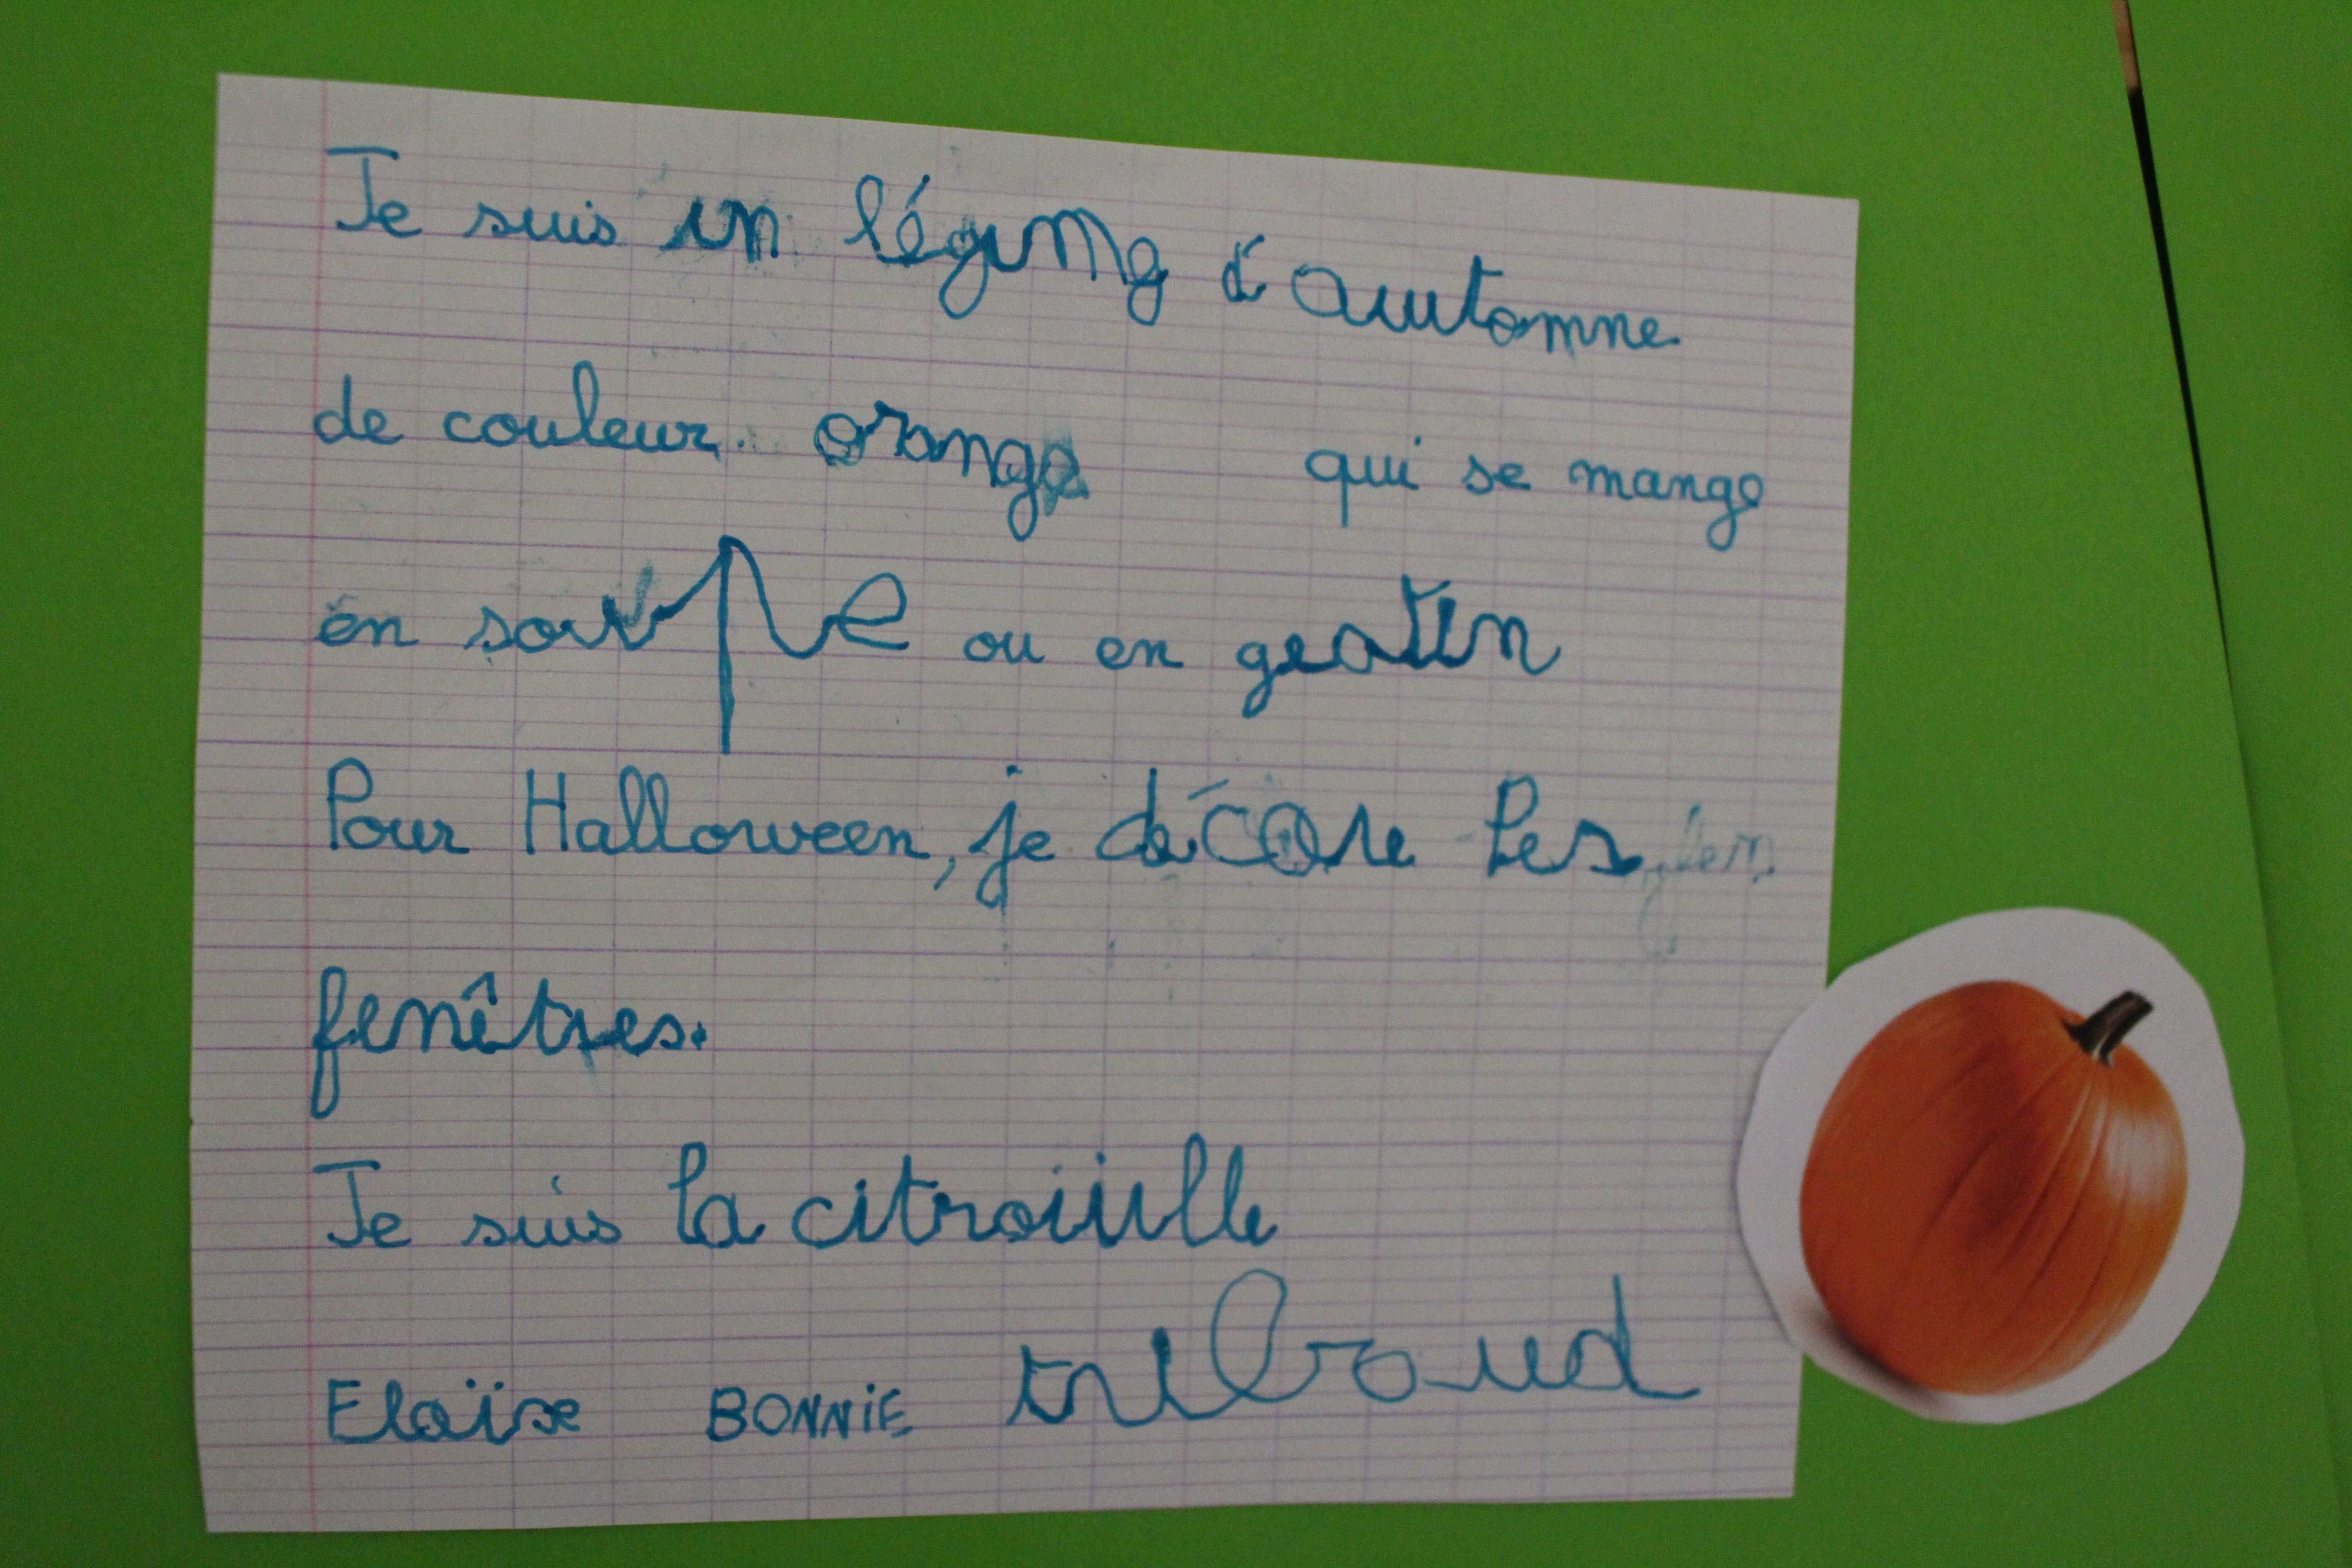 Je suis un légume d'automne
de couleur orange qui se mange
en soupe ou en gratin
Pour Halloween, je décore les
fenêtres.
Je suis la citroiiulle
Eloïse BONNIE